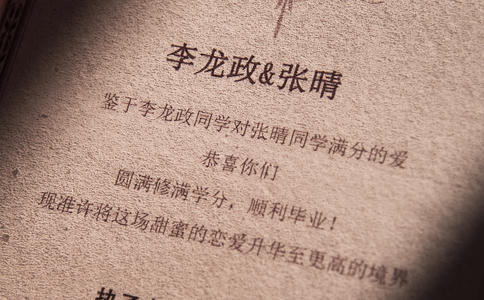 李龙政&张晴
鉴于李龙政同学对张晴同学满分的爱
恭喜你们
圆满修满学分，顺利毕业！
现准许将这场甜蜜的恋爱升华至更高的境界